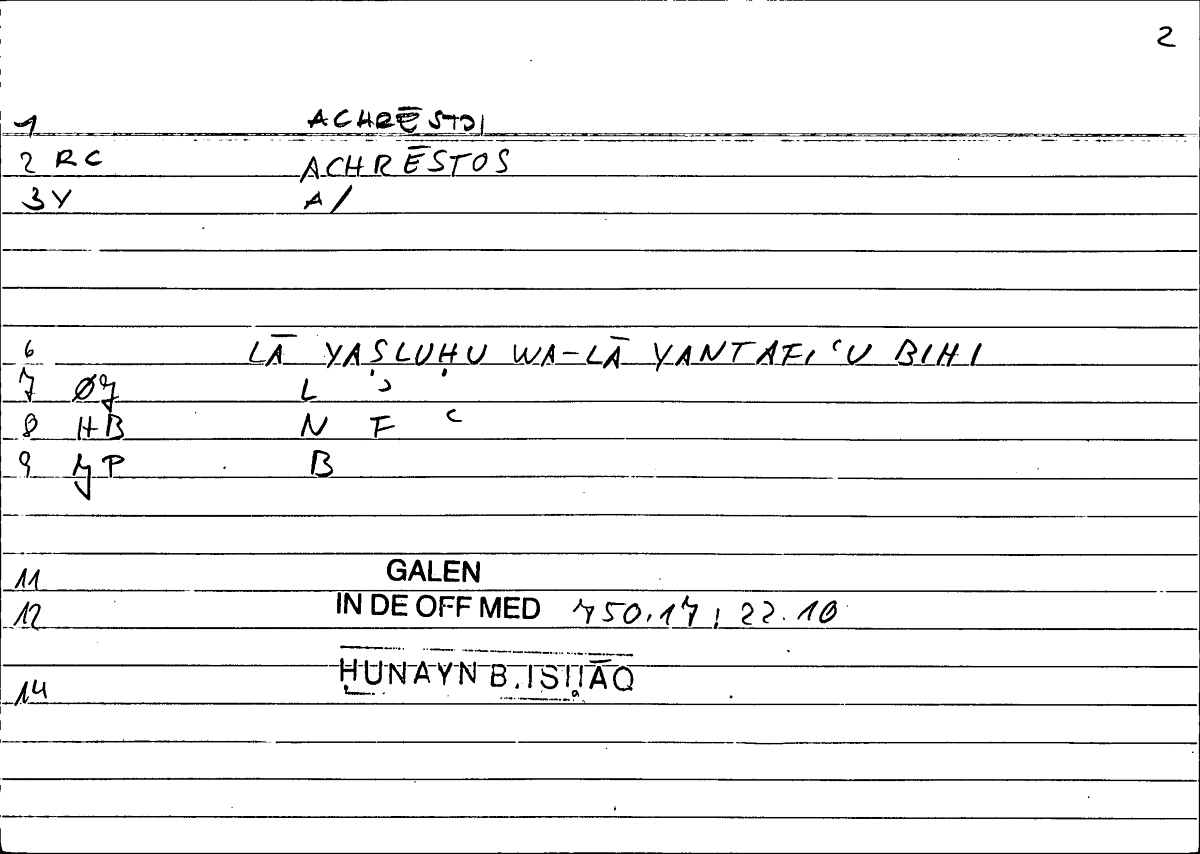 2
1 ACHRĒSTOI
2 RC ACHRĒSTOS
3 Y A/
6 LĀ YAṢLUḤU WA-LĀ YANTAFIʿU BIHI
7 Ø7 L ʾ
8 HB N F ʿ
9 YP B
11 GALEN
12 IN DE OFF MED 750.17; 22.10
14 ḤUNAYN B. ISḤĀQ